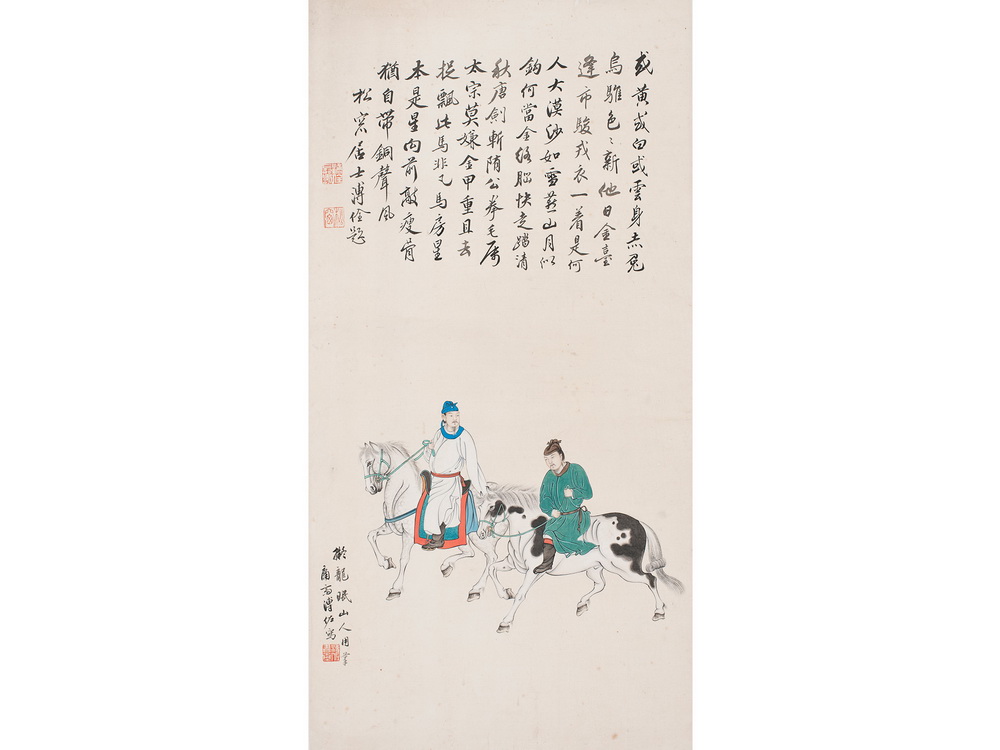 或黃或白或雲身赤兔
烏騅色々新他日金臺
逢市駿戎衣一着是何
人大漠沙如雪燕山月似
鈎何當金絡腦快走踏清
秋唐劍斬隋公拳毛屬
太宗莫嫌金甲重且去
捉飄此馬非凡馬房星
本是星向前敲瘦骨
猶自帶銅聲風
松窗居士溥佺題
擬龍眠山人用筆
溥佐寫